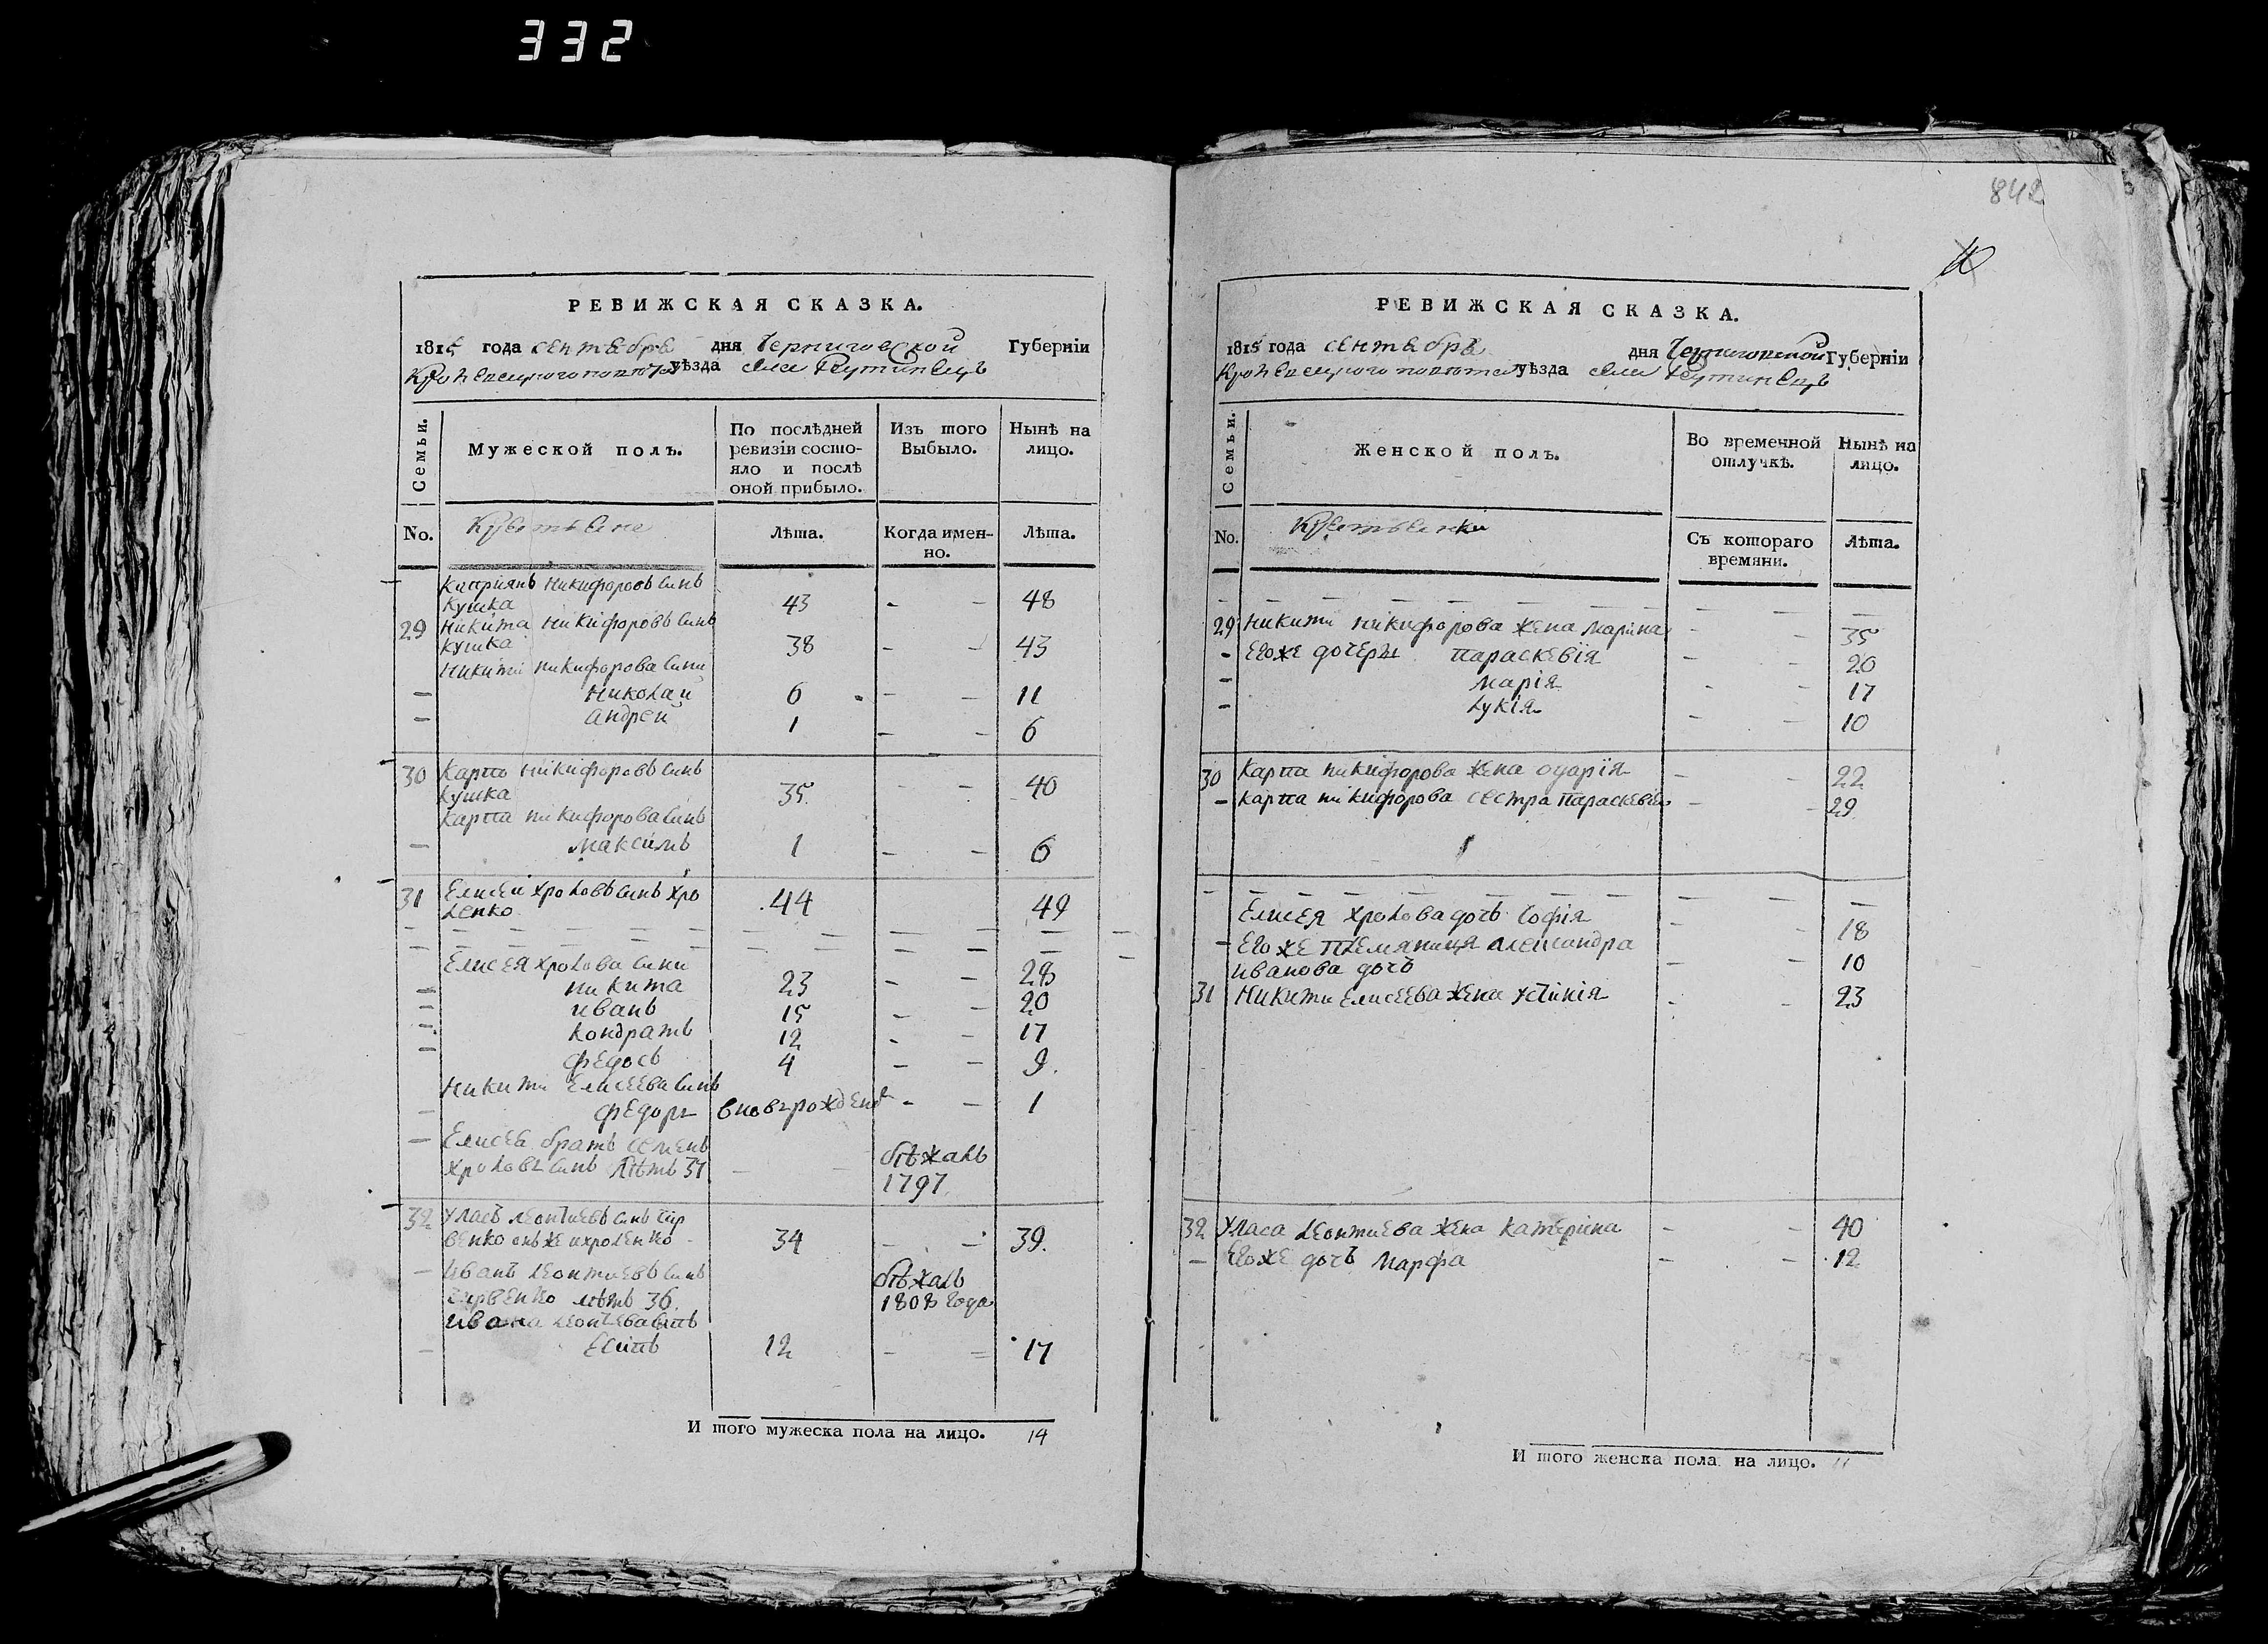 332
842
РЕВИЖСКАЯ СКАЗКА.
1815 года сентября дня Черниговской Губерніи
Кролевецкого повѣта уѣзда села Реутинецъ
Семьи.
Мужеской полъ.
По послѣдней ревизіи состояло и послѣ оной прибыло.
Изъ того Выбыло.
Нынѣ на лицо.
No.
Лѣта.
Когда именно.
Лѣта.
Киприянъ Никифоровъ синъ
Кушка 43 - - 48
29 Никита Никифоровъ синъ
Кушка 38 - - 43
Никити Никифорова сини
- Николай 6 - - 11
- Андрей 1 - - 6
30 Карпъ Никифоровъ синъ
Кушка 35 - - 40
Карпа Никифорова синъ
- Максимъ 1 - - 6
31 Елисей Хроловъ синъ Хро
ленко 44 49
Елисея Хролова сини
- Никита 23 - - 28
- Иванъ 15 - - 20
- Кондратъ 12 - - 17
- Федосъ 4 - - 9.
Никити Елисеева синъ
- Федоръ вновърожденъ - - 1
- Елисея братъ Семенъ
Хроловъ синъ лѣтъ 37 - - бѣжалъ
1797
32 Уласъ Леонтиевъ синъ
онъ же и Хроленко 34 - - 39.
- Иванъ Леонтиевъ синъ бѣжалъ
лѣтъ 36. 1808 года
Ивана Леонтева синъ
- Есипъ 12 - - 17
И того мужеска пола на лицо. 14
РЕВИЖСКАЯ СКАЗКА.
1815 года сентября дня Черниговской Губерніи
Кролевецкого повѣта уѣзда села Реутинецъ
Семьи.
Женской полъ.
Во временной отлучкѣ.
Нынѣ на лицо.
No.
Съ котораго времяни.
Лѣта.
29 Никити Никифорова жена Марина - - 35
- Егоже дочеры Параскевія - - 20
- Марія - - 17
- Лукія - - 10
30 Карпа Никифорова жена - - 22
- Карпа Никифорова сестра Параскевія - - 29
Елисея Хролова дочь Софія - - 18
- Егоже племяница Александра
Иванова дочь - - 10
31 Никити Елисеева жена Устинія - - 23
32 Уласа Леонтиева жена Катерина - - 40
- Егоже дочь Марфа - - 12
И того женска пола на лицо. 11